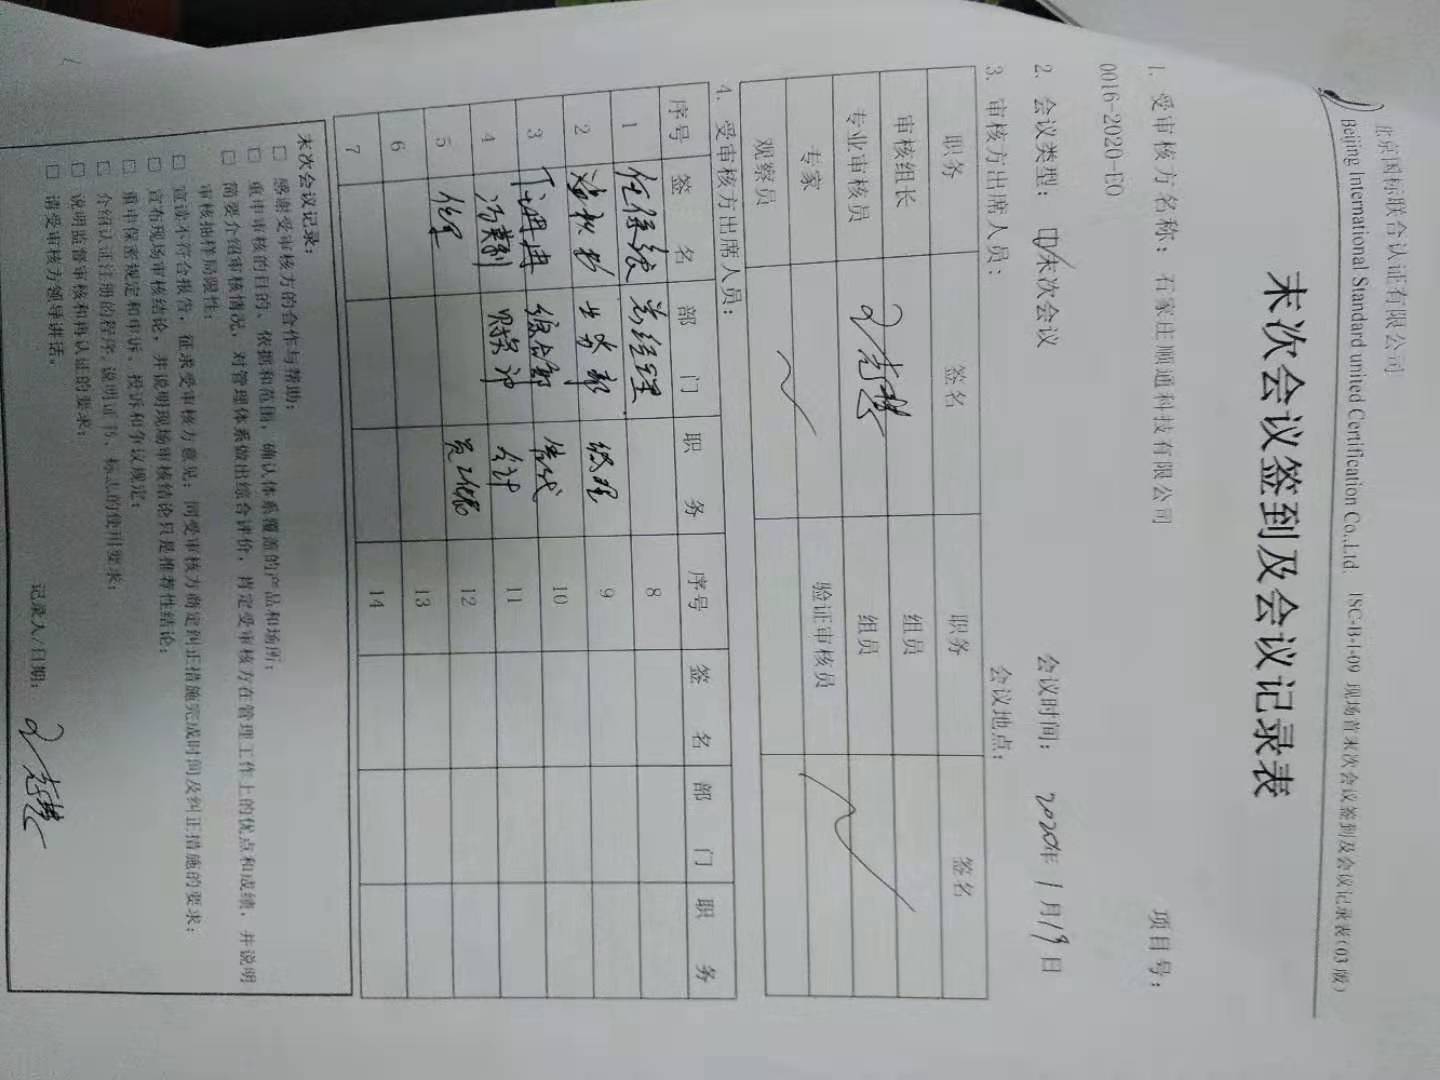 北京国标联合认证有限公司
Beijing International Standard united Certification Co.,Ltd. ISC-B-I-09 现场首末次会议签到及会议记录表(03版)
末次会议签到及会议记录表
1. 受审核方名称：石家庄顺通科技有限公司 项目号：
0016-2020-EO
2. 会议类型： 末次会议 会议时间： 2020年1月19日
3. 审核方出席人员： 会议地点：
职务 签名 职务 签名
审核组长 组员
专业审核员 组员
专家 验证审核员
观察员
4. 受审核方出席人员：
序号 签名 部门 职务 序号 签名 部门 职务
1 总经理 8
2 业务部 经理 9
3 综合部 10
4 会计 11
5 12
6 13
7 14
末次会议记录：
□ 感谢受审核方的合作与帮助；
□ 重申审核的目的、依据和范围，确认体系覆盖的产品和场所；
□ 简要介绍审核情况，对管理体系做出综合评价，肯定受审核方在管理工作上的优点和成绩，并说明
审核抽样局限性；
□ 宣读不符合报告，征求受审核方意见；同受审核方商定纠正措施完成时间及纠正措施的要求；
□ 宣布现场审核结论，并说明现场审核结论只是推荐性结论；
□ 重申保密规定和申诉、投诉和争议规定；
□ 介绍认证注册的程序，说明证书、标志的使用要求；
□ 说明监督审核和再认证的要求；
□ 请受审核方领导讲话。
记录人/日期：